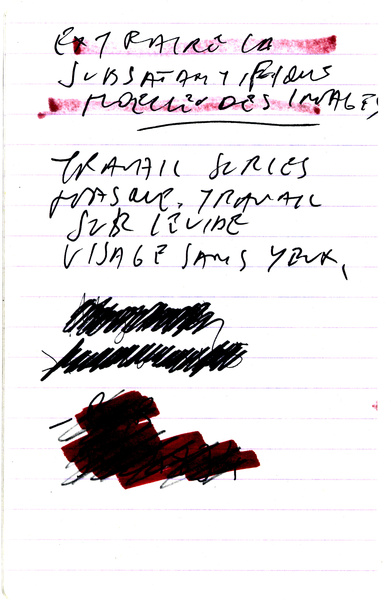 EXTRAIRE LA
SUBSTANTIFIQUE
MOELLE DES IMAGES
TRAVAIL SUR LES
MASQUE. TRAVAIL
SUR LE VIDE
VISAGE SANS YEUX,